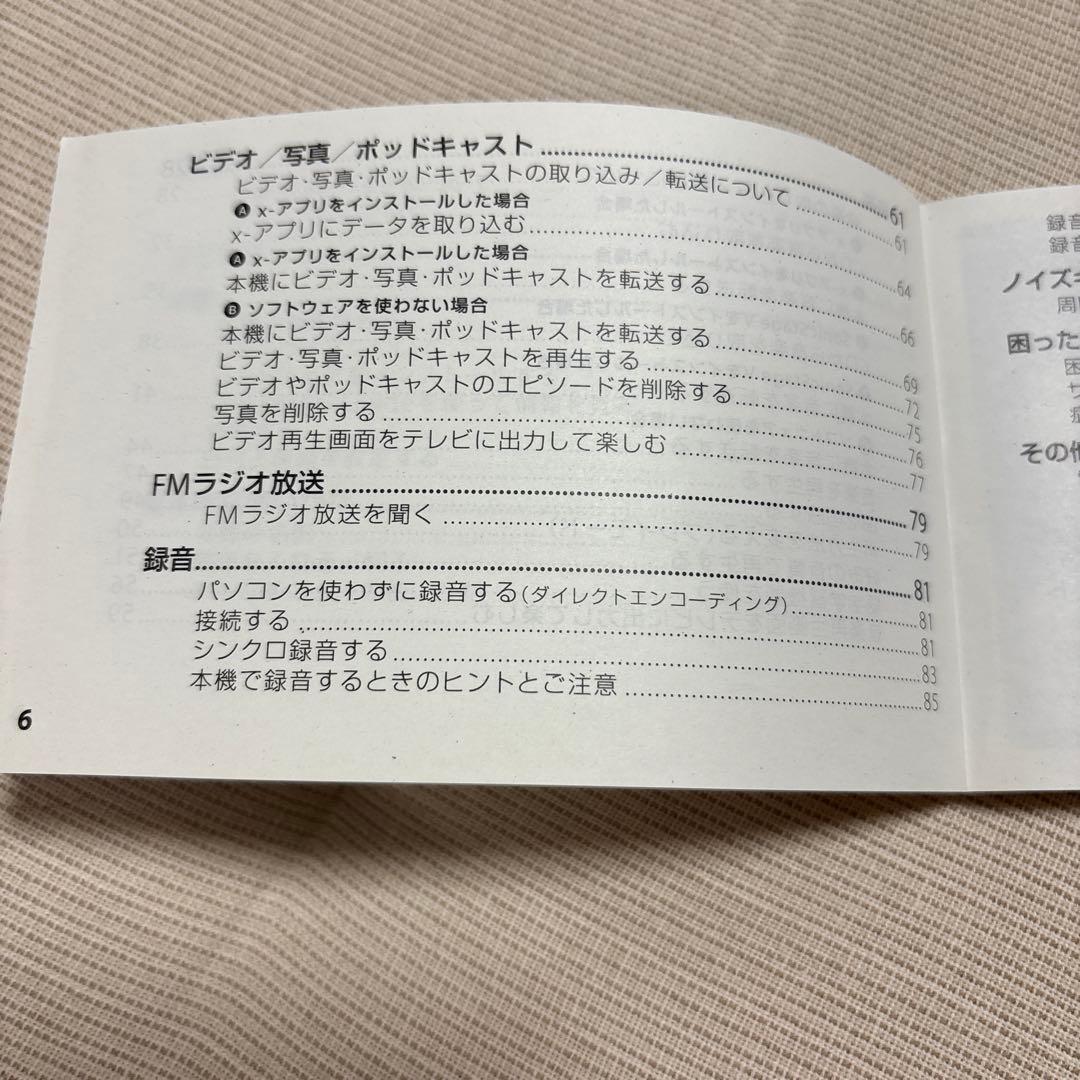 ビデオ／写真／ポッドキャスト……61
ビデオ・写真・ポッドキャストの取り込み／転送について……61
A x-アプリをインストールした場合
x-アプリにデータを取り込む……64
A x-アプリをインストールした場合
本機にビデオ・写真・ポッドキャストを転送する……66
B ソフトウェアを使わない場合
本機にビデオ・写真・ポッドキャストを転送する……69
ビデオ・写真・ポッドキャストを再生する……72
ビデオやポッドキャストのエピソードを削除する……75
写真を削除する……76
ビデオ再生画面をテレビに出力して楽しむ……77
FMラジオ放送……79
FMラジオ放送を聞く……79
録音……81
パソコンを使わずに録音する（ダイレクトエンコーディング）……81
接続する……81
シンクロ録音する……83
本機で録音するときのヒントとご注意……85
6
録音
録音
ノイズキ
周
困った
困
その他